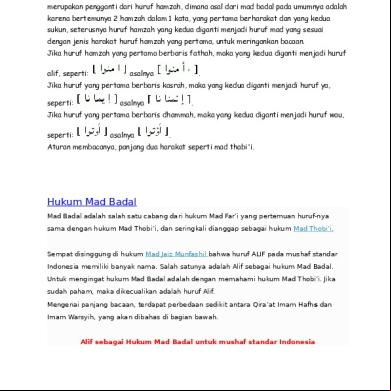 merupakan pengganti dari huruf hamzah, dimana asal dari mad badal pada umumnya adalah
karena bertemunya 2 hamzah dalam 1 kata, yang pertama berharakat dan yang kedua
sukun, seterusnya huruf hamzah yang kedua diganti menjadi huruf mad yang sesuai
dengan jenis harakat huruf hamzah yang pertama, untuk meringankan bacaan.
Jika huruf hamzah yang pertama berbaris fathah, maka yang kedua diganti menjadi huruf
alif, seperti: [ ا منوا ] asalnya [ ء أ منوا ].
Jika huruf yang pertama berbaris kasrah, maka yang kedua diganti menjadi huruf ya,
seperti: [ إ يما نا ] asalnya [ إ ئتما نا ].
Jika huruf yang pertama berbaris dhammah, maka yang kedua diganti menjadi huruf wau,
seperti: [ أ وتوا ] asalnya [ أ ؤتوا ].
Aturan membacanya, panjang dua harakat seperti mad thobi'i.
Hukum Mad Badal
Mad Badal adalah salah satu cabang dari hukum Mad Far'i yang pertemuan huruf-nya
sama dengan hukum Mad Thobi'i, dan seringkali dianggap sebagai hukum Mad Thobi'i.
Sempat disinggung di hukum Mad Jaiz Munfashil bahwa huruf ALIF pada mushaf standar
Indonesia memiliki banyak nama. Salah satunya adalah Alif sebagai hukum Mad Badal.
Untuk mengingat hukum Mad Badal adalah dengan memahami hukum Mad Thobi'i. Jika
sudah paham, maka dikecualikan adalah huruf Alif.
Mengenai panjang bacaan, terdapat perbedaan sedikit antara Qira'at Imam Hafhs dan
Imam Warsyih, yang akan dibahas di bagian bawah.
Alif sebagai Hukum Mad Badal untuk mushaf standar Indonesia